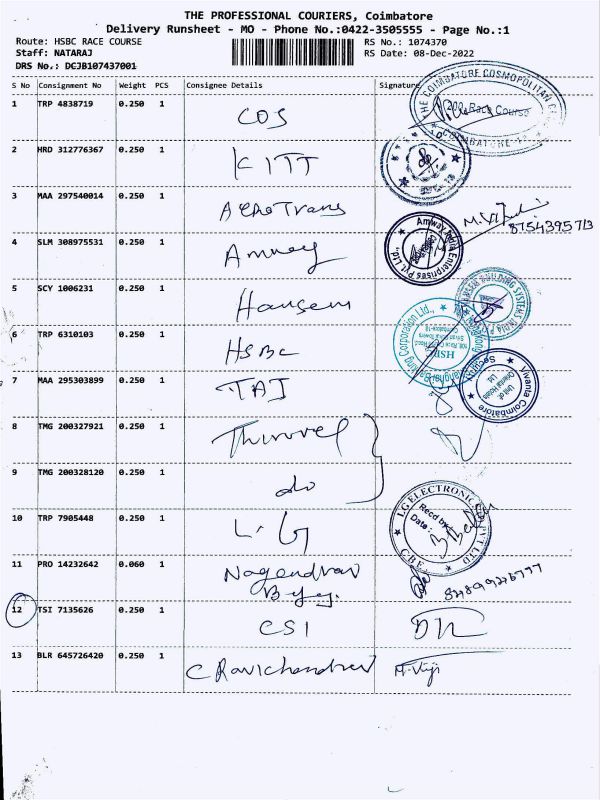 THE PROFESSIONAL COURIERS, Coimbatore
Delivery Runsheet - MO - Phone No.:0422-3505555 - Page No.:1
Route: HSBC RACE COURSE RS No.: 1074370
Staff: NATARAJ RS Date: 08-Dec-2022
DRS No.: DCJB107437001
S No Consignment No Weight PCS Consignee Details Signature
1 TRP 4838719 0.250 1 COS
THE COIMBATORE COSMOPOLITAN
Race Course
COIMBATORE
2 HRD 312776367 0.250 1 KITT
3 MAA 297540014 0.250 1
8754395713
4 SLM 308975531 0.250 1 Amway
Amway India Enterprises Pvt. Ltd.
5 SCY 1006231 0.250 1 Hansem
BUILDING SYSTEMS
6 TRP 6310103 0.250 1 HSBC
Banking Corporation Ltd.,
HSBC
7 MAA 295303899 0.250 1 TAJ
Vivanta Coimbatore
Unit of
Oriental Hotels
Ltd
Security
8 TMG 200327921 0.250 1
9 TMG 200328120 0.250 1 do
10 TRP 7905448 0.250 1 L.G
LG ELECTRONICS PVT LTD
Recd by
Date:
CBE
11 PRO 14232642 0.060 1 Nagendran
12 TSI 7135626 0.250 1 CSI
13 BLR 645726420 0.250 1 C Ravichandran